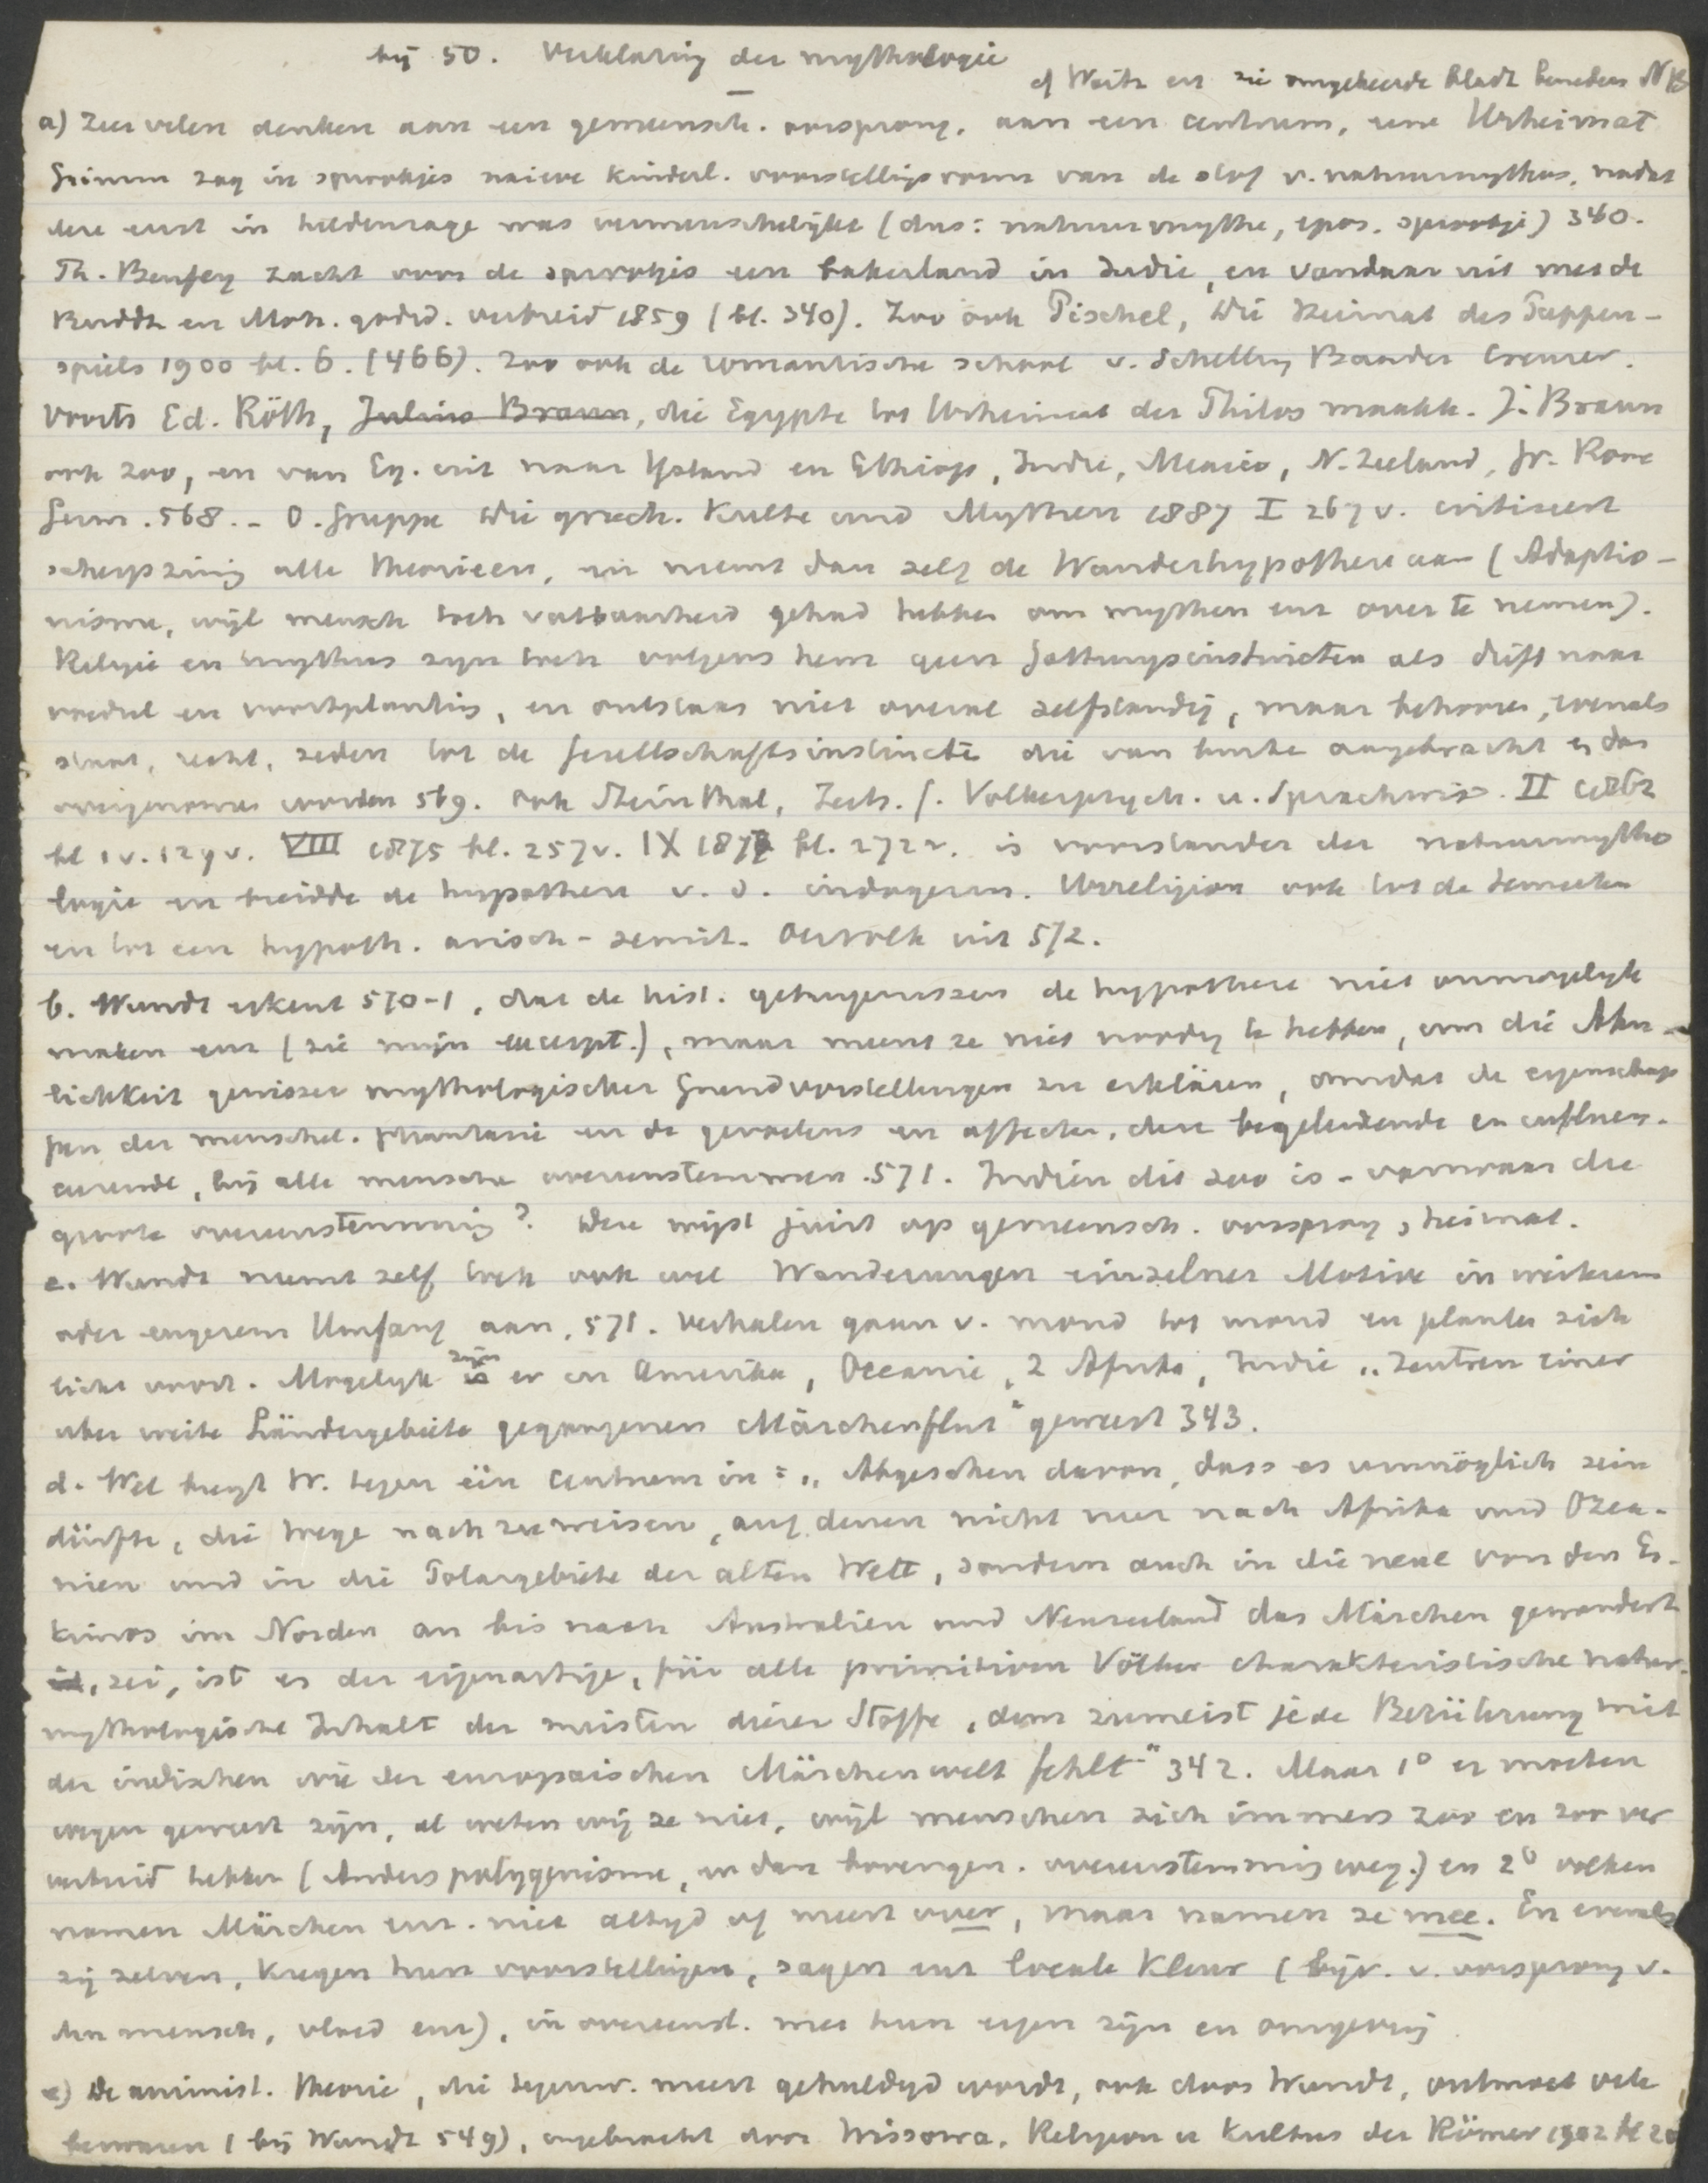 bij 50. Verklaring der mythologie
c) Waitz en zie omgekeerde bladz beneden NB
a) Zeer velen denken aan een gemeensch. oorsprong, aan een centrum, eene Urheimat
Grimm zag in sprookjes naieve kinderl. voorstellingsvorm van de stof v. natuurmythus, nadat
deze eerst in heldensage was vermenschelijkt (dus: natuurmythe, epos, sprookje) 340.
Th. Benfey zocht voor de sprookjes een bakerland in Indie, en vandaar uit met de
Buddh en Moh. godsd. verbreid 1859 (bl. 340). Zoo ook Pischel, Die Heimat des Puppen-
spiels 1900 bl. 6. (466). Zoo ook de romantische school v. Schelling Baader Creuzer.
Voorts Ed. Röth, Julius Braun, die Egypte tot Urheimat der Philos maakte. J. Braun
ook zoo, en van Eg. uit naar IJsland en Ethiop, Indie, Mexico, N. Zeeland, Gr. Rome
Germ. 568. - O. Gruppe Die griech. Kulte und Mythen 1887 I 267 v. critiseert
scherpzinnig alle theorieen, en neemt dan zelf de Wanderhypothese aan (Adaptio-
nisme, wijl mensch toch vatbaarheid gehad hebben om mythen enz over te nemen).
Religie en mythus zijn toch volgens hem geen Gattungsinstincten als drift naar
voedsel en voortplanting, en ontstaan niet overal zelfstandig, maar behooren, evenals
staat, recht, zeden tot de Gesellschaftsinstincte die van buiten aangebracht en dan
overgenomen worden 569. Ook Steinthal, Zeits. f. Volkerpsych. u. Sprachwiss. II 1862
bl 1 v. 129 v. VIII 1875 bl. 257 v. IX 1877 bl. 272 v. is voorstander der natuurmytho
logie en breidde de hypothese v. d. indogerm. Urreligion ook tot de Semieten
en tot een hypoth. arisch-semit. Oervolk uit 572.
b. Wundt erkent 570-1, dat de hist. getuigenissen de hypothese niet onmogelijk
maken enz (zie mijn excerpt.), maar meent ze niet noodig te hebben, om die Ahn-
lichkeit gewisser mythologischer Grundvorstellungen zu erklären, omdat de eigenschap
pen der menschel. phantasie en de gevoelens en affecten, deze begeleidende en influen-
ceerende, bij alle menschen overeenstemmen. 571. Indien dit zoo is - vanwaar die
groote overeenstemming? Deze wijst juist op gemeensch. oorsprong, heimat.
c. Wundt neemt zelf toch ook wel Wanderungen einzelner Motive in weiterem
oder engerem Umfang aan, 571. Verhalen gaan v. mond tot mond en planten zich
licht voort. Mogelijk zijn er in Amerika, Oceanie, Z Afrika, Indie „Zentren einer
über weite Ländergebiete gegangenen Märchenflut" geweest 343.
d. Wel brengt W. tegen één centrum in: „Abgesehen davon, dass es unmöglich sein
dürfte, die Wege nachzuweisen, auf denen nicht nur nach Afrika und Ozea-
nien und in die Polargebiete der alten Welt, sondern auch in die neue von den Es-
kimos im Norden an bis nach Australien und Neuseeland das Märchen gewandert
ist, sei, ist es der eigenartige, für alle primitiven Völker charakteristische natur-
mythologische Inhalt der meisten dieser Stoffe, dem zumeist jede Berührung mit
der indischen wie der europäischen Märchenwelt fehlt" 342. Maar 1° er moeten
wegen geweest zijn, al weten wij ze niet, wijl menschen zich immers zoo en zoo ver
verbreid hebben (Anders polygenisme, en dan bovengen. overeenstemming weg.) en 2° volken
namen Märchen enz. niet altijd of meest over, maar namen ze mee. En evenals
zij zelven, kregen hun voorstellingen, sagen enz locale kleur (bijv. v. oorsprong v.
den mensch, vloed enz), in overeenst. met hun eigen zijn en omgeving
e) De animist. theorie, die tegenw. meest gehuldigd wordt, ook door Wundt, ontmoet vele
bezwaren (bij Wundt 549), ingebracht door Wissowa, Religion u Kultus der Römer 1902 bl 20